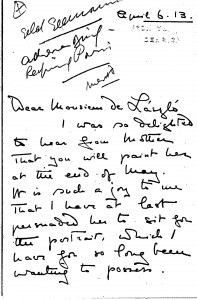 April 6. 13.
Dear Monsieur de László
I was so delighted
to hear from Mother
that you will paint her
at the end of May.
It is such a joy to me
that I have at last
persuaded her to sit for
the portrait, which I
have for so long been
wanting to possess.